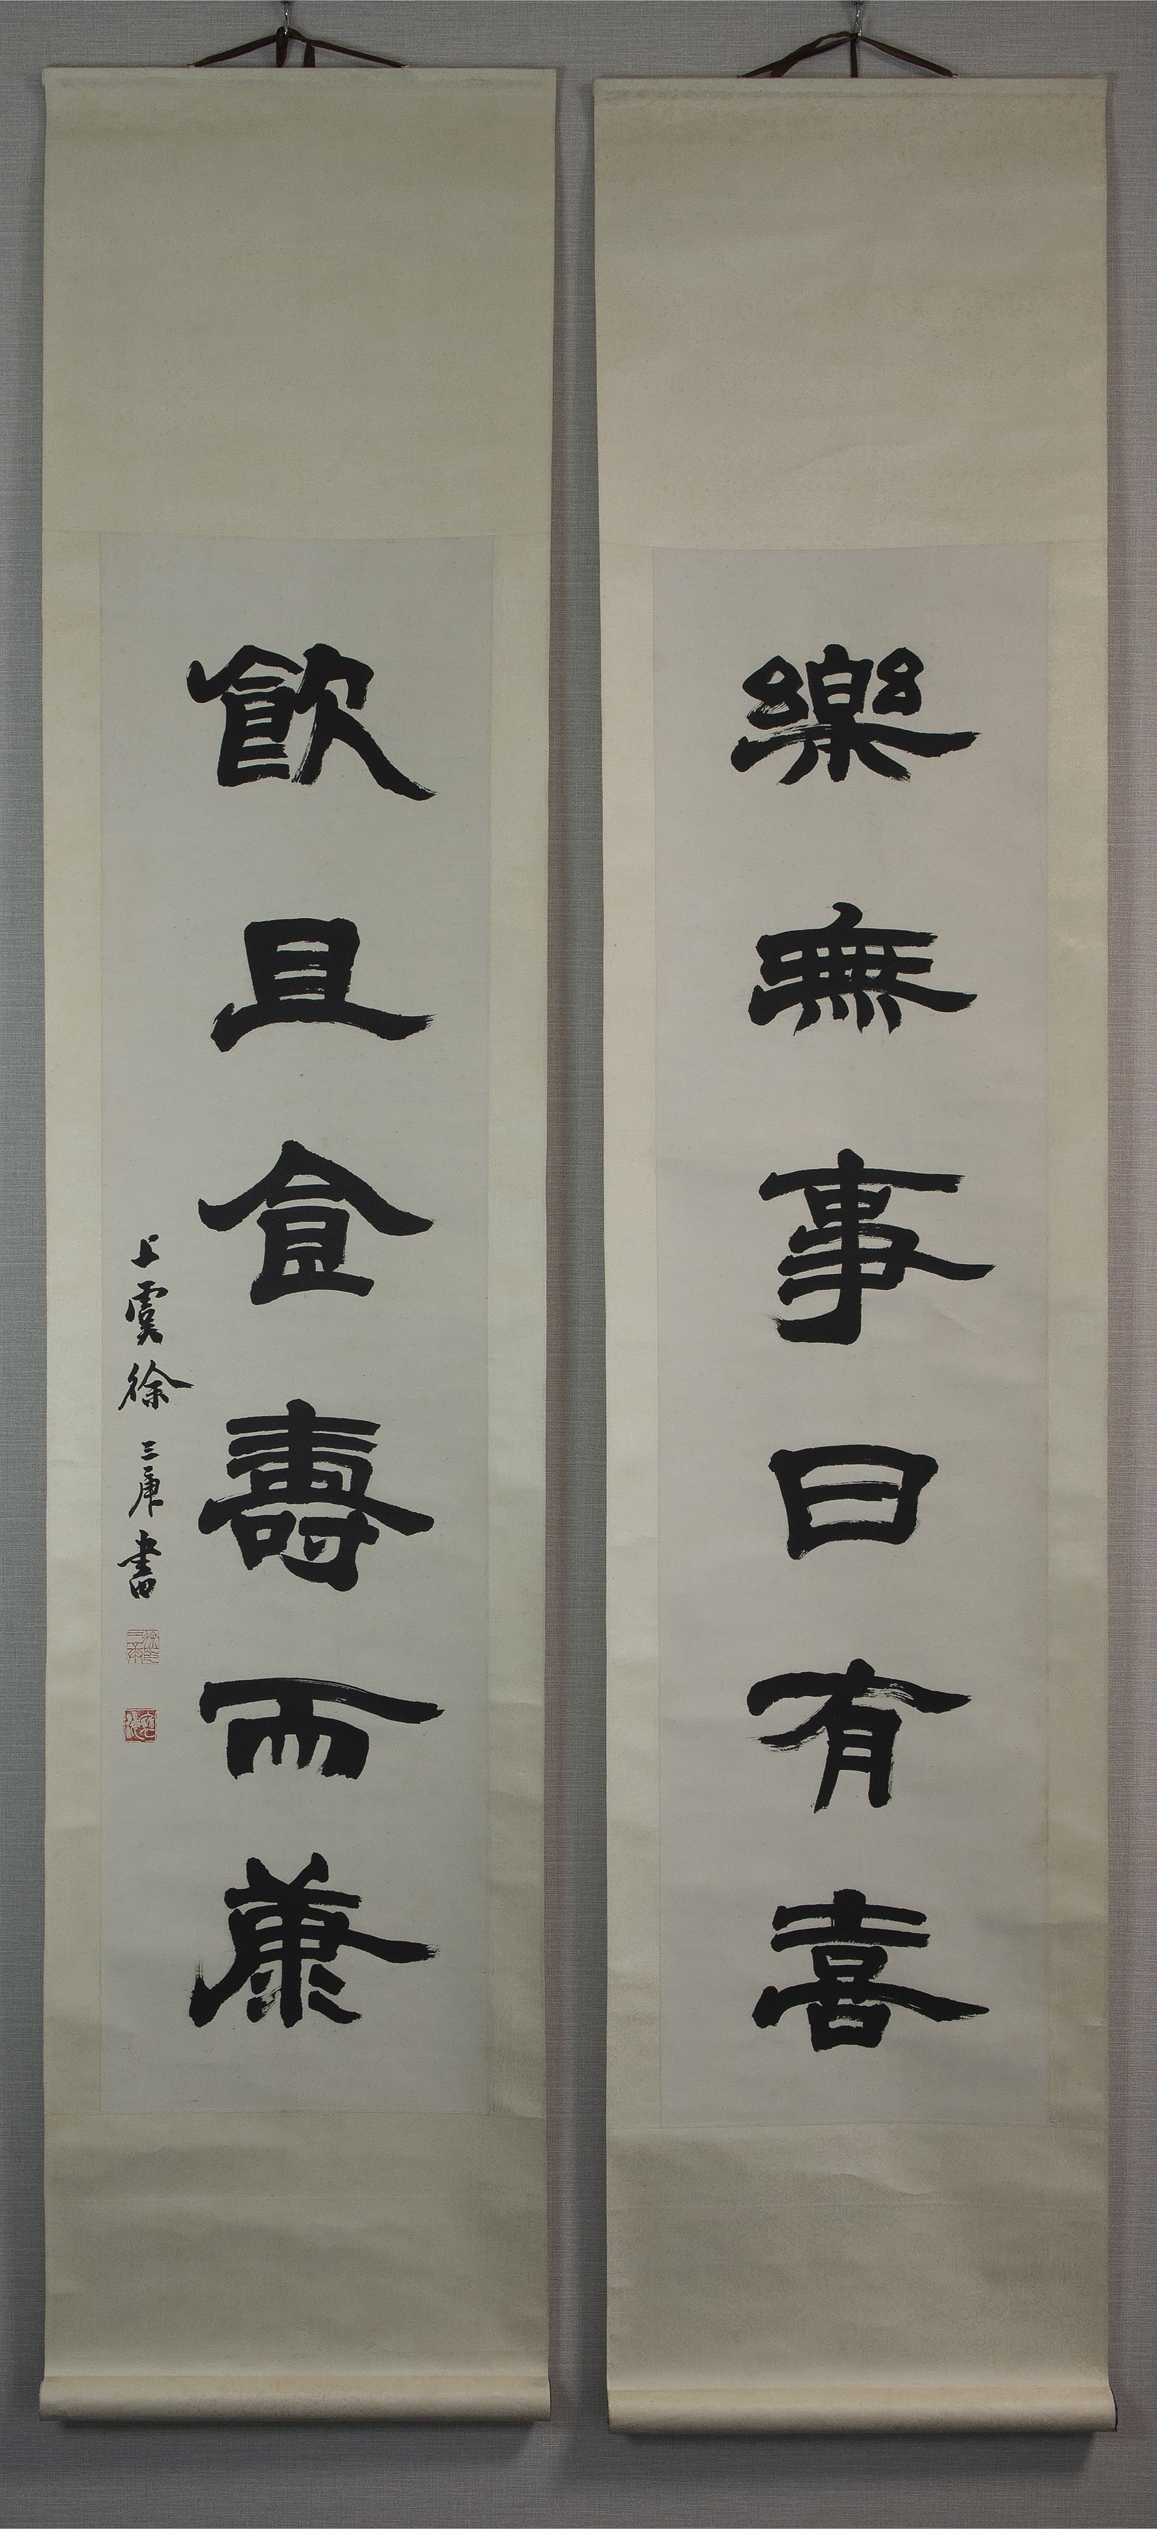 樂無事日有喜
飲且食壽而康
上虞徐三庚書